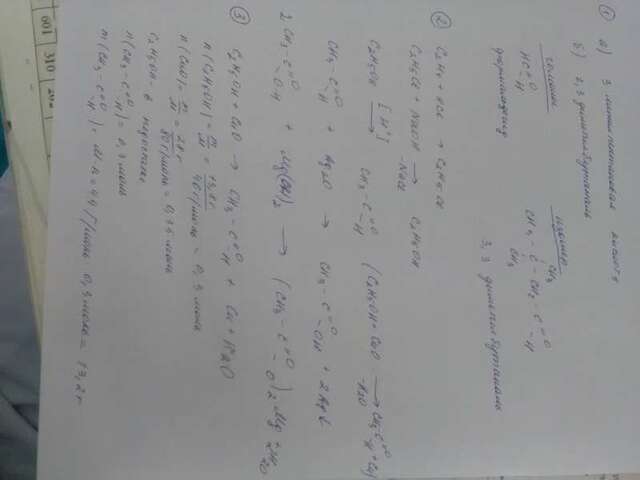 ① а) 3 метилпентановая кислота
б) 2,3 диметилбутаналь
гомолог
HC=O
-H
формальдегид
изомер
CH3
CH3 - C - CH2 - C =O -H
CH3
3,3 диметилбутаналь
② C2H4 + HCl → C2H5Cl
C2H5Cl + NaOH → C2H5OH
-NaCl
C2H5OH [H+] → CH3-C=O -H (C2H5OH + CuO → CH3-C=O -H + Cu)
-H2O
CH3-C=O -H + Ag2O → CH3-C=O -OH + 2Ag↓
2CH3-C=O -OH + Mg(OH)2 → (CH3-C=O -O)2 Mg + 2H2O
③ C2H5OH + CuO → CH3-C=O -H + Cu + H2O
n(C2H5OH) = m/M = 13,8г / 46 г/моль = 0,3 моль
n(CuO) = m/M = 28г / 80 г/моль = 0,35 моль
C2H5OH - в недостатке
n(CH3-C=O -H) = 0,3 моль
m(CH3-C=O -H) = M·n = 44 г/моль · 0,3 моль = 13,2 г
601 310